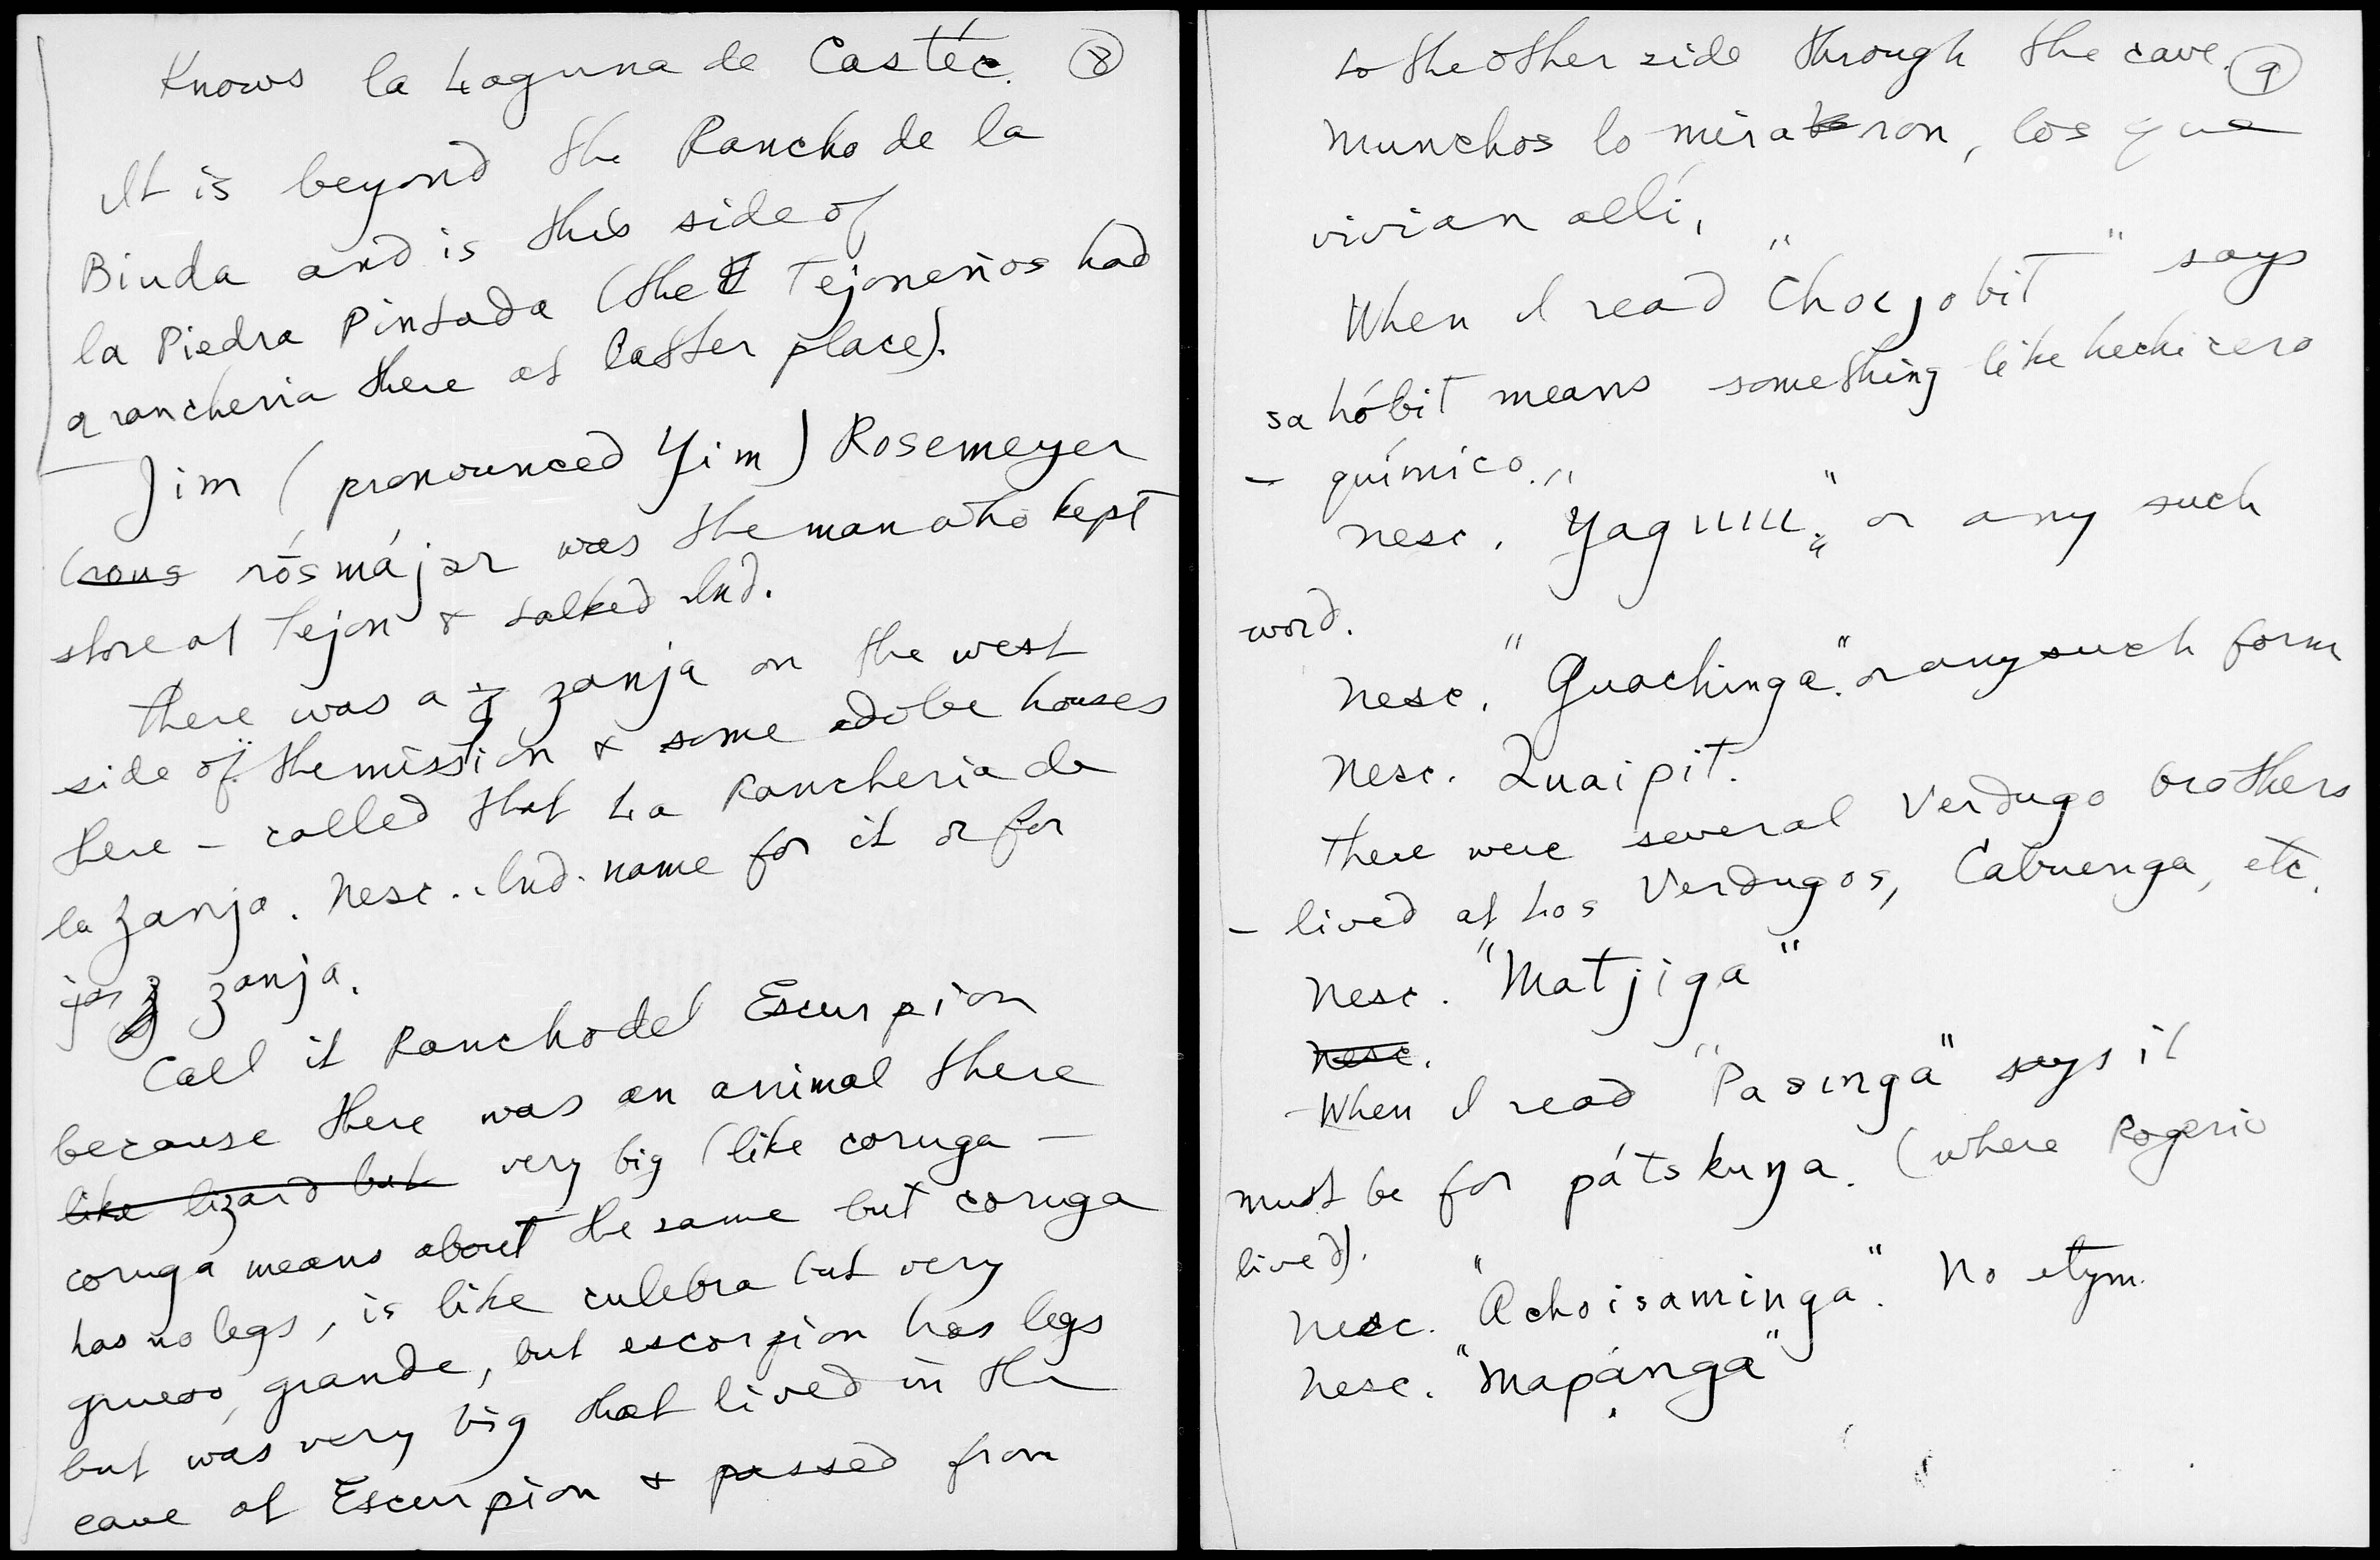 Knows la Laguna de Castéc. 8
It is beyond the Rancho de la
Biuda and is this side of
la Piedra Pintada (the Tejoneños had
a rancheria there at latter place).
Jim (pronounced Yim) Rosemeyer
(rous rósmájər was the man who kept
store at Tejon & talked Ind.
There was a z zanja on the west
side of the mission & some adobe houses
there – called that La Rancheria de
la Zanja. Nesc. Ind. name for it or for
zanja.
Call it Rancho del Escurpion
because there was an animal there
like lizard but very big (like coruga –
coruga means about the same but coruga
has no legs, is like culebra but very
grueso, grande, but escorpion has legs
but was very big that lived in the
cave at Escurpion & passed from
to the other side through the cave. 9
Munchos lo miraron, los que
vivian allí.
When I read "Chocjobit" says
sahóbit means something like hechicero
– químico.
Nesc. "Yaguuu" or any such
word.
Nesc. "Guachinga" or any such form
Nesc. Quaipit.
There were several Verdugo brothers
– lived at Los Verdugos, Cabuenga, etc.
Nesc. "Matjiga"
Nesc.
When I read "Pasinga" says it
must be for pátskuŋa. (where Rogerio
lived).
Nesc. "Achoisaminga". No etym.
Nesc. "Mapánga"